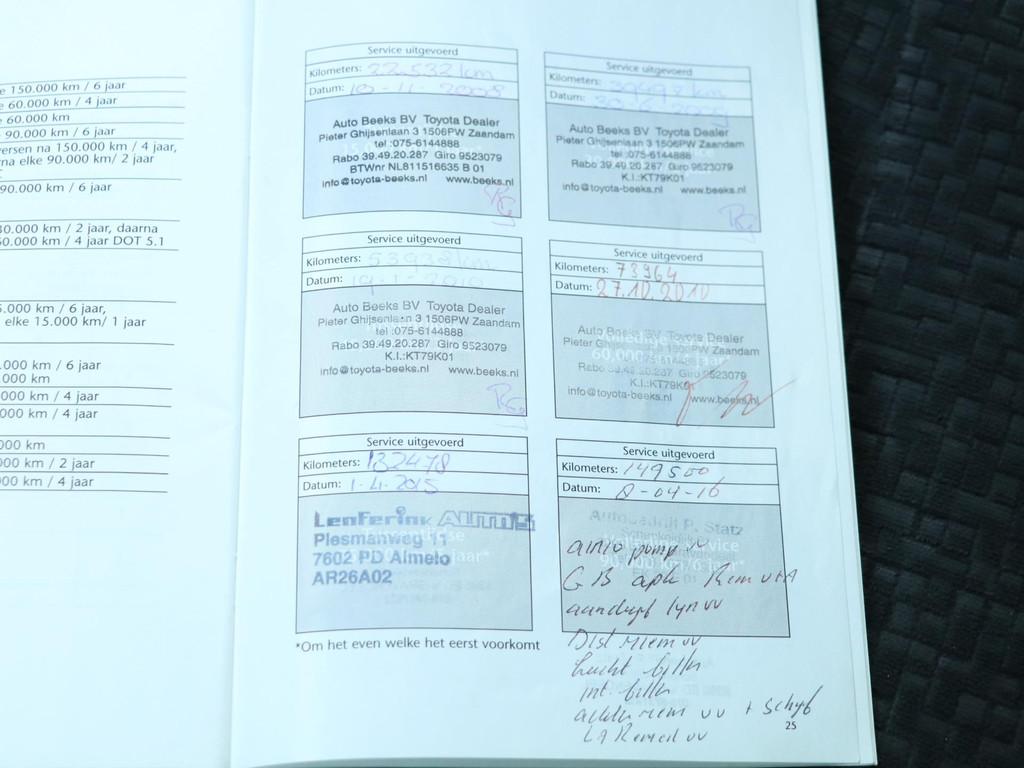 150.000 km / 6 jaar
60.000 km / 4 jaar
60.000 km
90.000 km / 6 jaar
ersen na 150.000 km / 4 jaar,
na elke 90.000 km/ 2 jaar
90.000 km / 6 jaar
30.000 km / 2 jaar, daarna
60.000 km / 4 jaar DOT 5.1
5.000 km / 6 jaar,
elke 15.000 km/ 1 jaar
.000 km / 6 jaar
.000 km
000 km / 4 jaar
000 km / 4 jaar
000 km
000 km / 2 jaar
000 km / 4 jaar
Service uitgevoerd
Kilometers: 22.532 km
Datum: 10-11-2008
Auto Beeks BV Toyota Dealer
Pieter Ghijsenlaan 3 1506PW Zaandam
tel :075-6144888
Rabo 39.49.20.287 Giro 9523079
BTWnr NL811516635 B 01
info@toyota-beeks.nl www.beeks.nl
Service uitgevoerd
Kilometers:
Datum:
Auto Beeks BV Toyota Dealer
Pieter Ghijsenlaan 3 1506PW Zaandam
tel :075-6144888
Rabo 39.49.20.287 Giro 9523079
K.I.:KT79K01
info@toyota-beeks.nl www.beeks.nl
Service uitgevoerd
Kilometers:
Datum: 19-1-2010
Auto Beeks BV Toyota Dealer
Pieter Ghijsenlaan 3 1506PW Zaandam
tel :075-6144888
Rabo 39.49.20.287 Giro 9523079
K.I.:KT79K01
info@toyota-beeks.nl www.beeks.nl
Service uitgevoerd
Kilometers: 73964
Datum: 27.10.2010
Auto Beeks BV Toyota Dealer
Pieter Ghijsenlaan 3 1506PW Zaandam
60.000
Rabo 39.49.20.287 Giro 9523079
K.I.:KT79K0
info@toyota-beeks.nl www.beeks.nl
Service uitgevoerd
Kilometers: 132478
Datum: 1-4-2015
Lenferink AUTO'S
Plesmanweg 11
7602 PD Almelo
AR26A02
Service uitgevoerd
Kilometers: 149500
Datum: 8-04-16
Autobedrijf P. Statz
90.000 km/6 jaar*
pomp vv
GB
vv
Dist riem vv
lucht
int.
vv + schijf
vv
*Om het even welke het eerst voorkomt
25